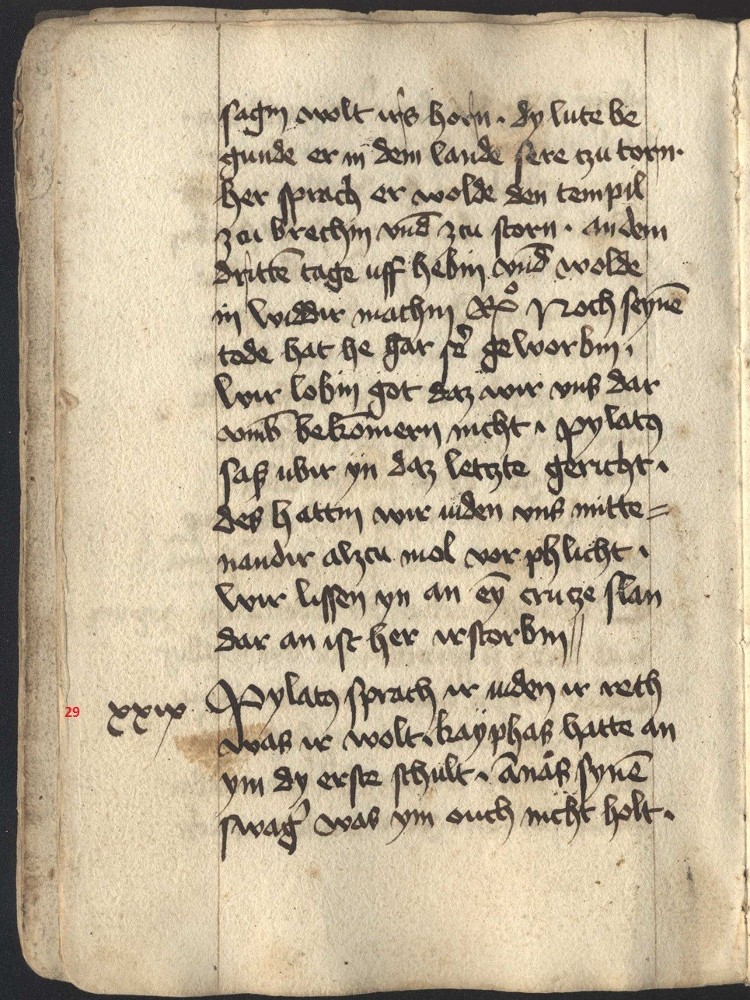 sagin wolt irs horn · dy lute be
gunde er in dem lande sere tzu torn ·
her sprach er wolde den tempil
zcu brechin vnd̄ zcu storn · an dem
drittē tage uff hebin vnd̄ wolde
in widdir machin Noch seynē
tode hat he gar sẽ geworbin ,
wir lobin got daz wir vns dar
vmb̄ bekōmern nicht · pylatꝰ
saß ubir yn daz letzte gericht ·
des hattin wir iuden vns mitte=
nandir alzcu mol vorphlicht ·
wir lissen yn an eȳ crucze slan
dar an ist her irstorbin //
29 xxix Pylatꝰ sprach ir iuden ir reth
was ir wolt · kayphas hatte an
ym dy erste schult · Annas synē
swag᷑ was ym ouch nicht holt ·